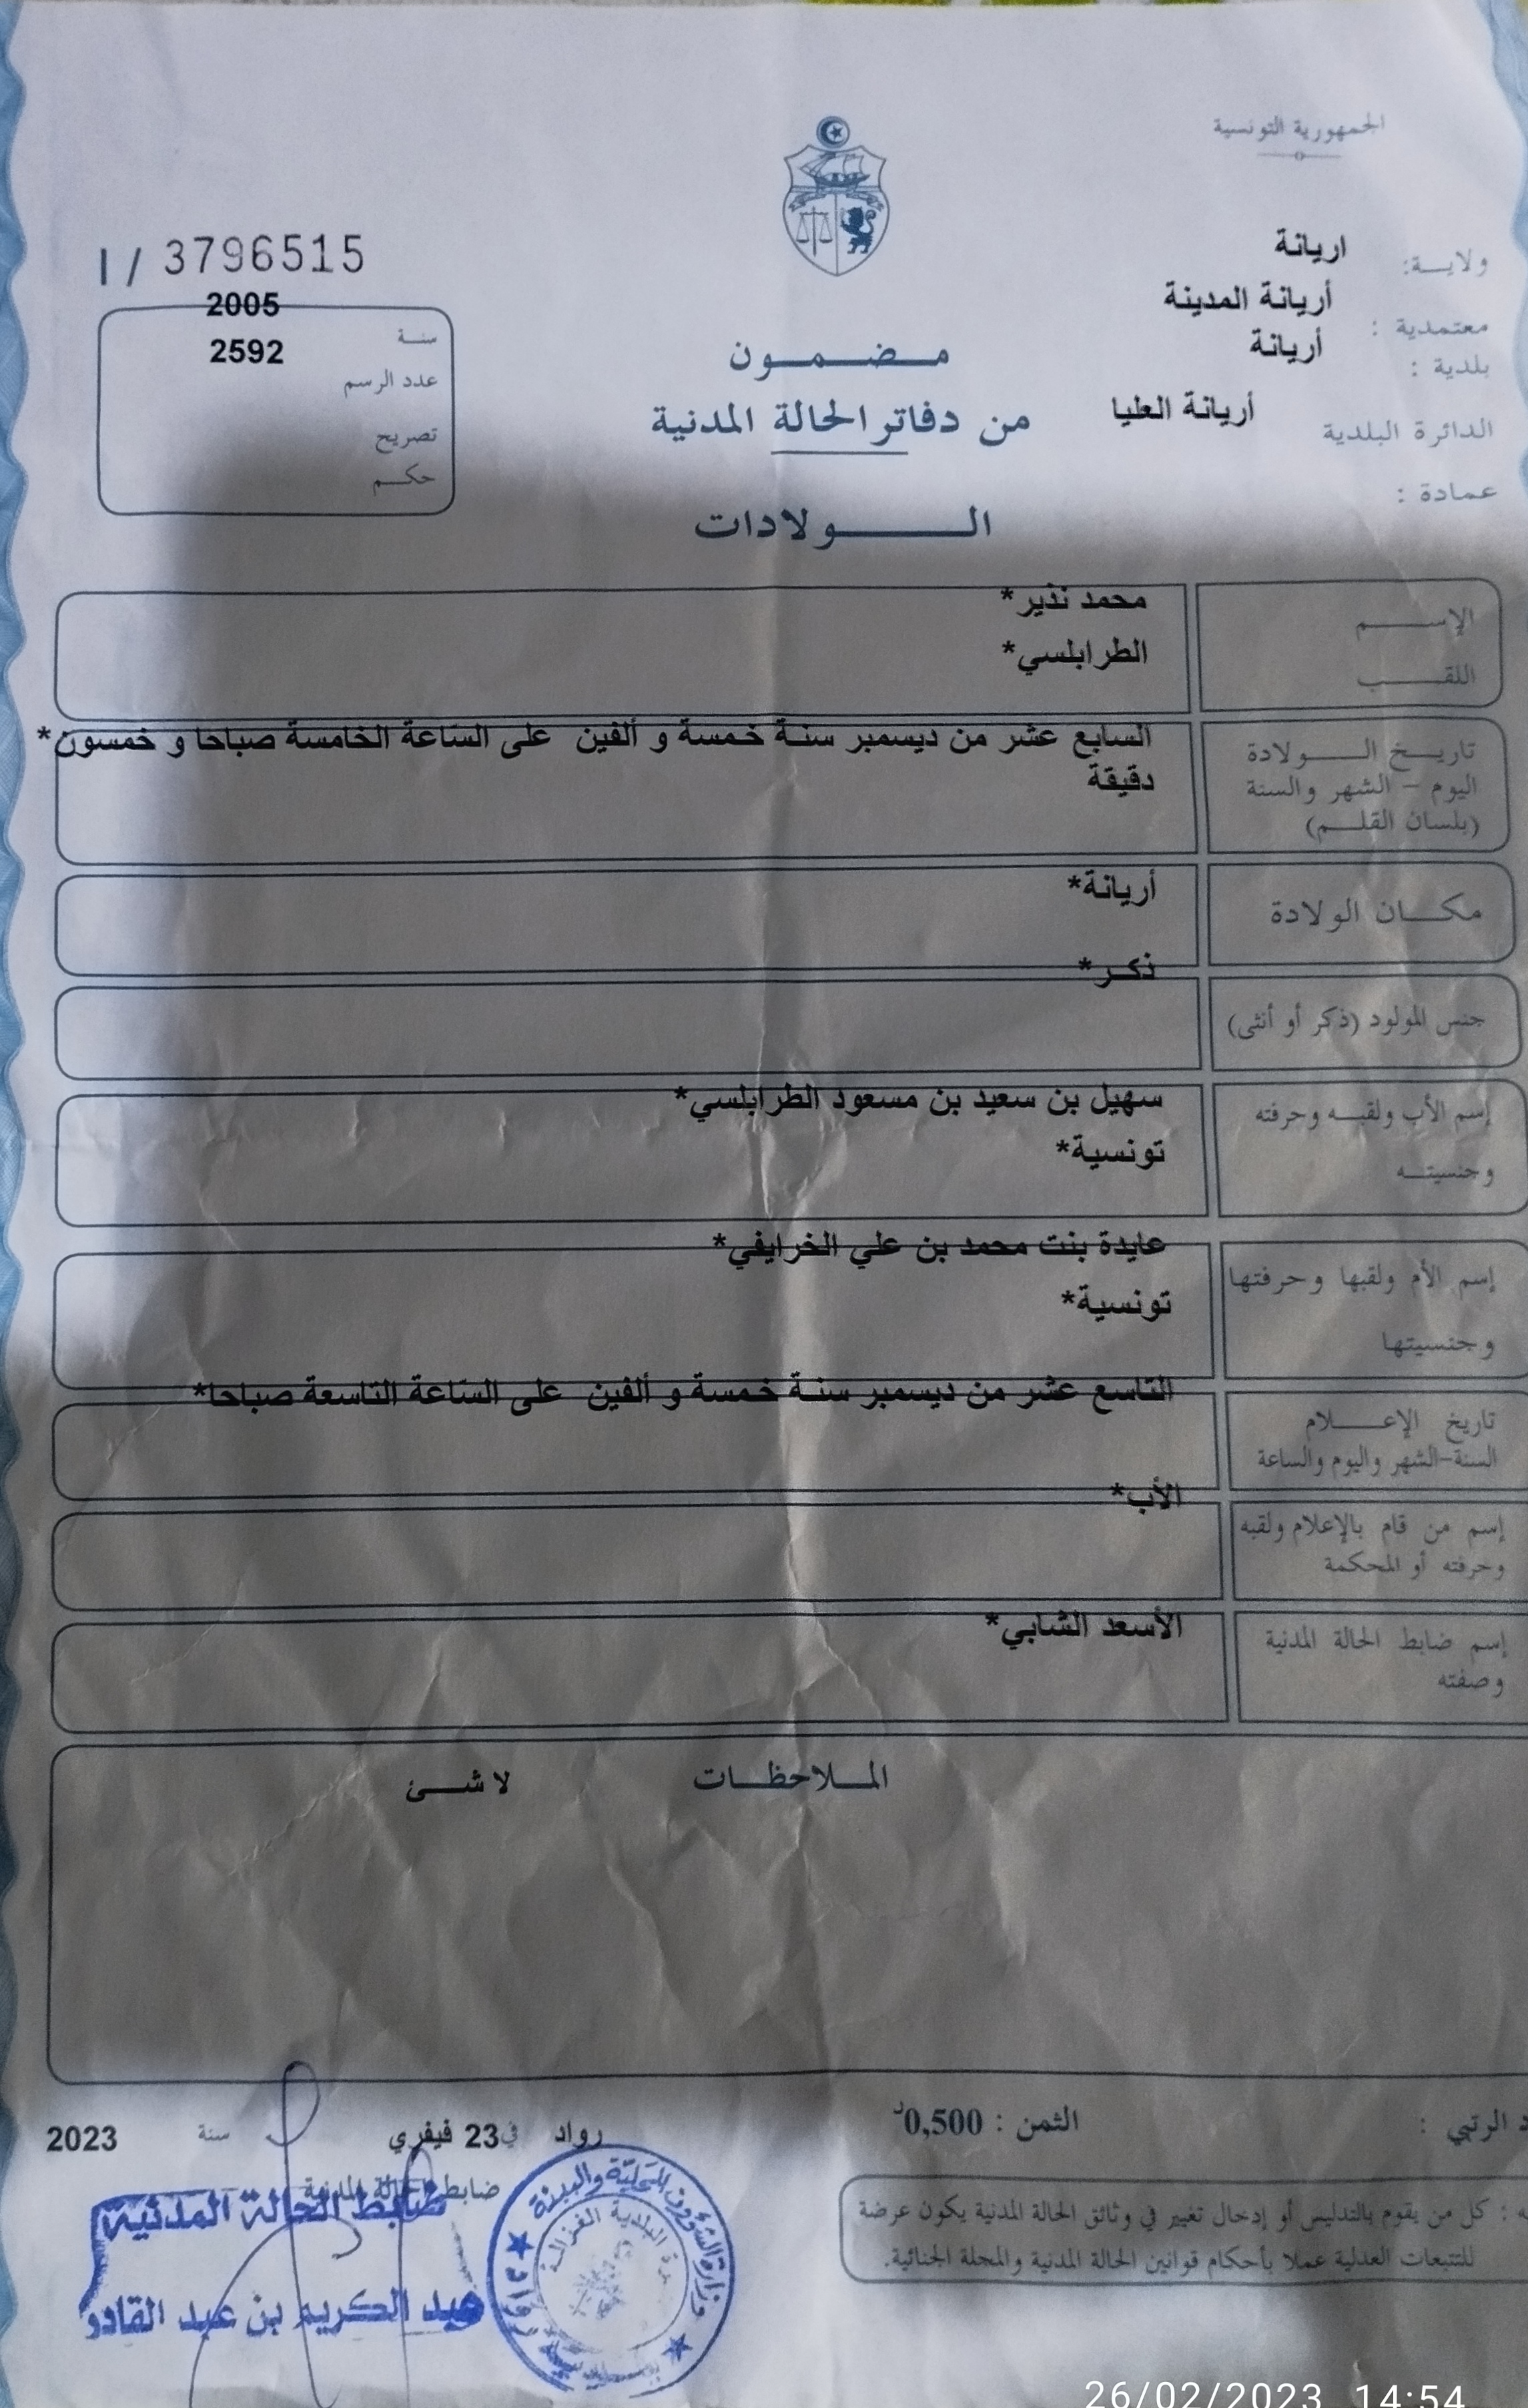 الجمهورية التونسية
ولايــة: اريانة
معتمدية : أريانة المدينة
بلدية : أريانة
الدائرة البلدية أريانة العليا
عمادة :
I / 3796515
سنة 2005
عدد الرسم 2592
تصريح
حكم
مضمون
من دفاتر الحالة المدنية
الولادات
الإسم محمد نذير*
اللقب الطرابلسي*
تاريخ الولادة السابع عشر من ديسمبر سنة خمسة و ألفين على الساعة الخامسة صباحا و خمسون*
اليوم - الشهر والسنة دقيقة
(بلسان القلم)
مكان الولادة أريانة*
جنس المولود (ذكر أو أنثى) ذكر*
إسم الأب ولقبه وحرفته سهيل بن سعيد بن مسعود الطرابلسي*
وجنسيته تونسية*
إسم الأم ولقبها وحرفتها عايدة بنت محمد بن علي الخرايفي*
وجنسيتها تونسية*
تاريخ الإعلام التاسع عشر من ديسمبر سنة خمسة و ألفين على الساعة التاسعة صباحا*
السنة-الشهر واليوم والساعة
إسم من قام بالإعلام ولقبه الأب*
وحرفته أو المحكمة
إسم ضابط الحالة المدنية الأسعد الشابي*
وصفته
الملاحظات لا شئ
الرتبي :
الثمن : 0,500د
رواد في 23 فيفري سنة 2023
ضابط الحالة المدنية
ضابط الحالة المدنية
عبد الكريم بن عبد القادر
وزارة الشؤون المحلية والبيئة
البلدية الغزالة
كل من يقوم بالتدليس أو إدخال تغيير في وثائق الحالة المدنية يكون عرضة
للتتبعات العدلية عملا بأحكام قوانين الحالة المدنية والمجلة الجنائية.
26/02/2023 14:54